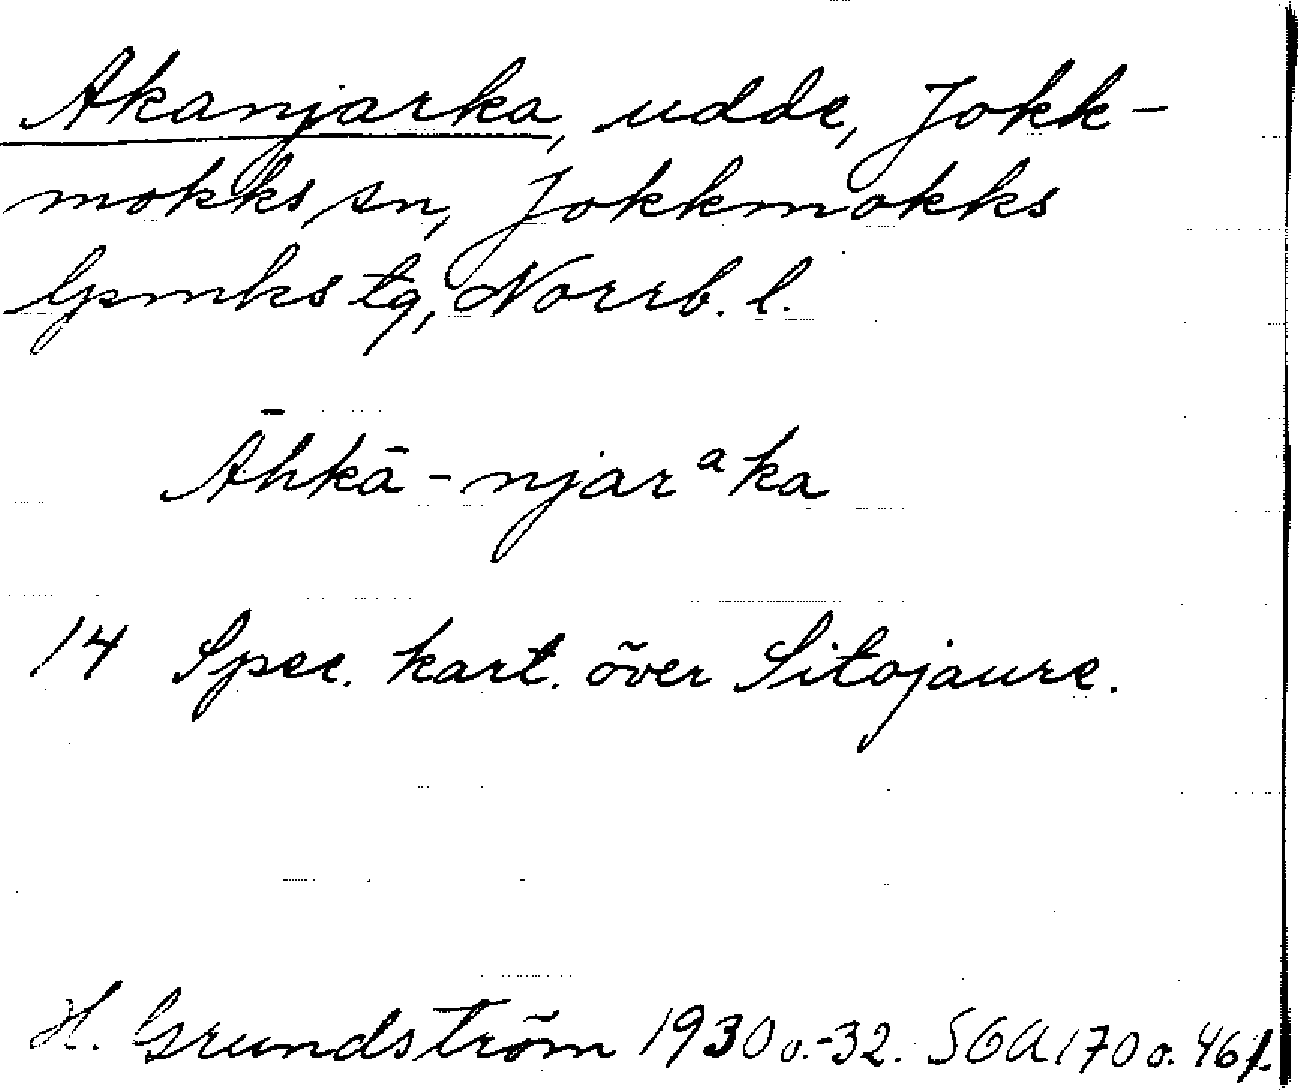 Akanjarka, udde, Jokk-
mokks sn, Jokkmokks
lpmks tg, Norrb. l.
Āhkā-njarᵃka
14 Spec. kart. över Sitojaure.
H. Grundström 1930 o.-32. SGA 170 o. 461.